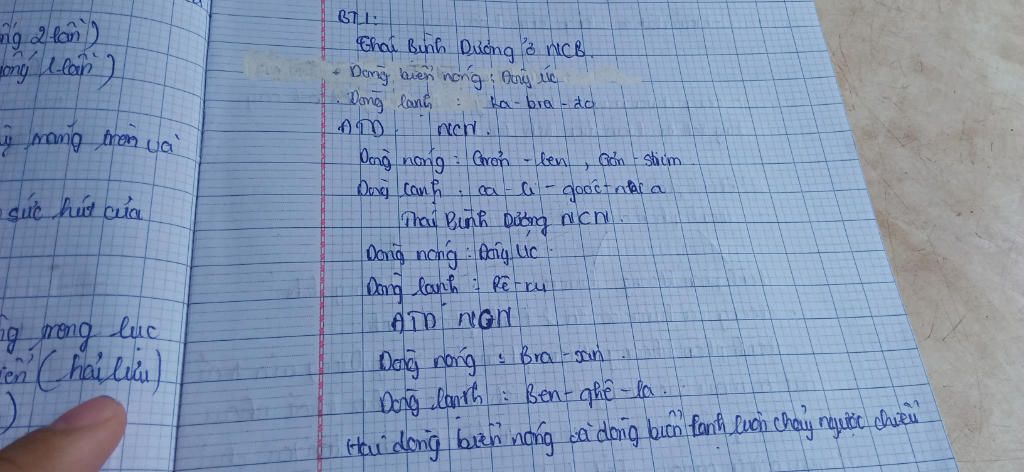 ng 2 lần)
ống 1 lần)
ỹ mang tren và
sức hút của
ng trong lục
iển (hải lưu)
)
BT1:
Thái Bình Dương ở NCB.
+ Dong biển nóng: Đong Úc
. Dong lanh : La-bra-do
ATD NCN.
Dong nóng: Gron-len, Gơn-stơm
Dong lanh : ca-li-gooc-nia
Thái Bình Dương NCN.
Dong nóng: Đong Úc.
Dong lanh : Pê-ru
ATD NCN
Dong nóng : Bra-san.
Dong lanh : Ben-ghê-la.
Hai dong biển nóng và dong biển lanh luôn chảy ngược chiều